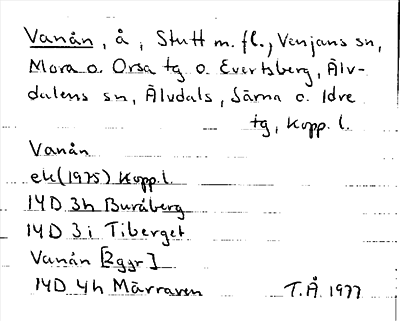 Vanån, å, Stutt m. fl., Venjans sn,
Mora o. Orsa tg o. Evertsberg, Älv-
dalens sn, Älvdals, Särna o. Idre
tg, Kopp. l.
Vanån
ek (1975) Kopp. l.
14D 3h Buråberg
14D 3i Tiberget
Vanån [2ggr]
14D 4h Märraren
T.Å 1977